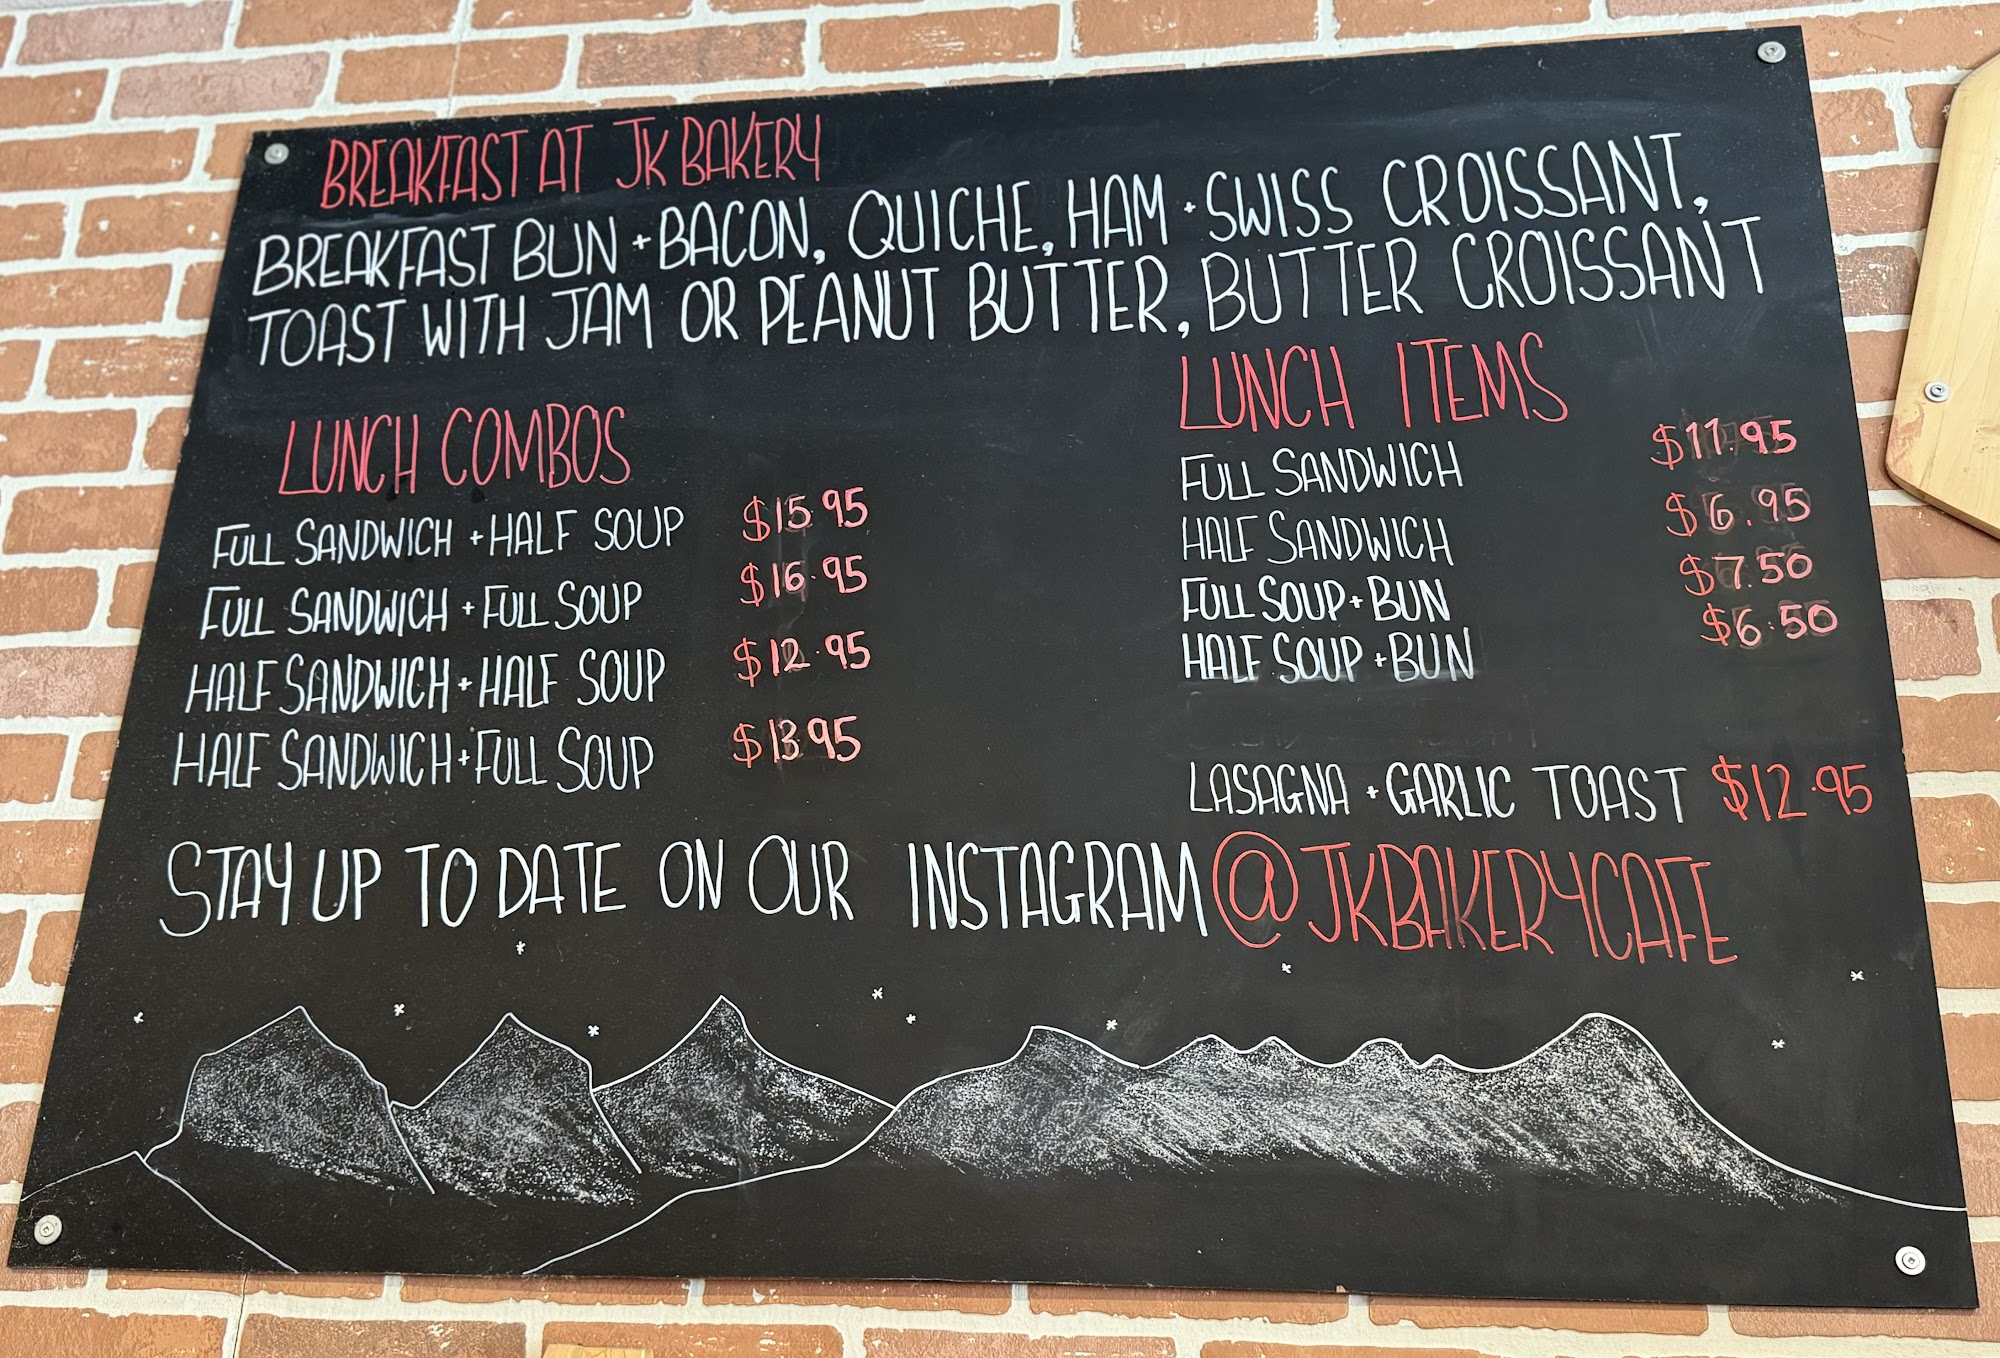 BREAKFAST AT JK BAKERY
BREAKFAST BUN + BACON, QUICHE, HAM + SWISS CROISSANT,
TOAST WITH JAM OR PEANUT BUTTER, BUTTER CROISSANT
LUNCH COMBOS
FULL SANDWICH + HALF SOUP $15.95
FULL SANDWICH + FULL SOUP $16.95
HALF SANDWICH + HALF SOUP $12.95
HALF SANDWICH + FULL SOUP $13.95
LUNCH ITEMS
FULL SANDWICH $11.95
HALF SANDWICH $6.95
FULL SOUP + BUN $7.50
HALF SOUP + BUN $6.50
LASAGNA + GARLIC TOAST $12.95
STAY UP TO DATE ON OUR INSTAGRAM @JKBAKERYCAFE